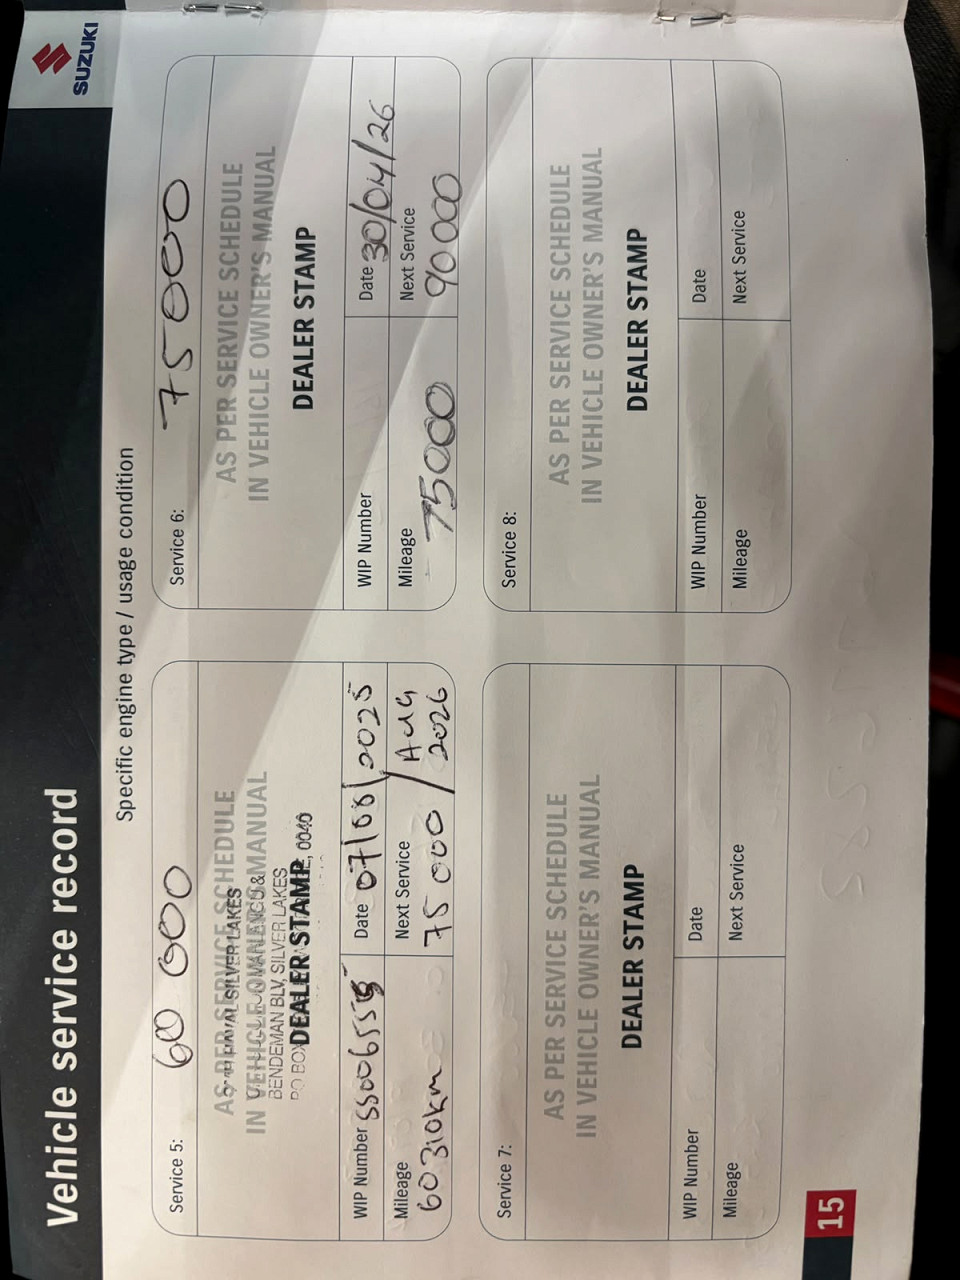 SUZUKI
Vehicle service record
Specific engine type / usage condition
Service 5: 60 000
AS PER SERVICE SCHEDULE
SILVER LAKES
IN VEHICLE OWNER'S MANUAL
BENDEMAN BLV, SILVER LAKES
DEALER STAMP
PO BOX 0040
WIP Number
Date 07/08/2025
Mileage
60310km
Next Service
75 000 / Aug 2026
Service 6: 75000
AS PER SERVICE SCHEDULE
IN VEHICLE OWNER'S MANUAL
DEALER STAMP
WIP Number
Date 30/04/26
Mileage
75000
Next Service
90000
Service 7:
AS PER SERVICE SCHEDULE
IN VEHICLE OWNER'S MANUAL
DEALER STAMP
WIP Number
Date
Mileage
Next Service
Service 8:
AS PER SERVICE SCHEDULE
IN VEHICLE OWNER'S MANUAL
DEALER STAMP
WIP Number
Date
Mileage
Next Service
15